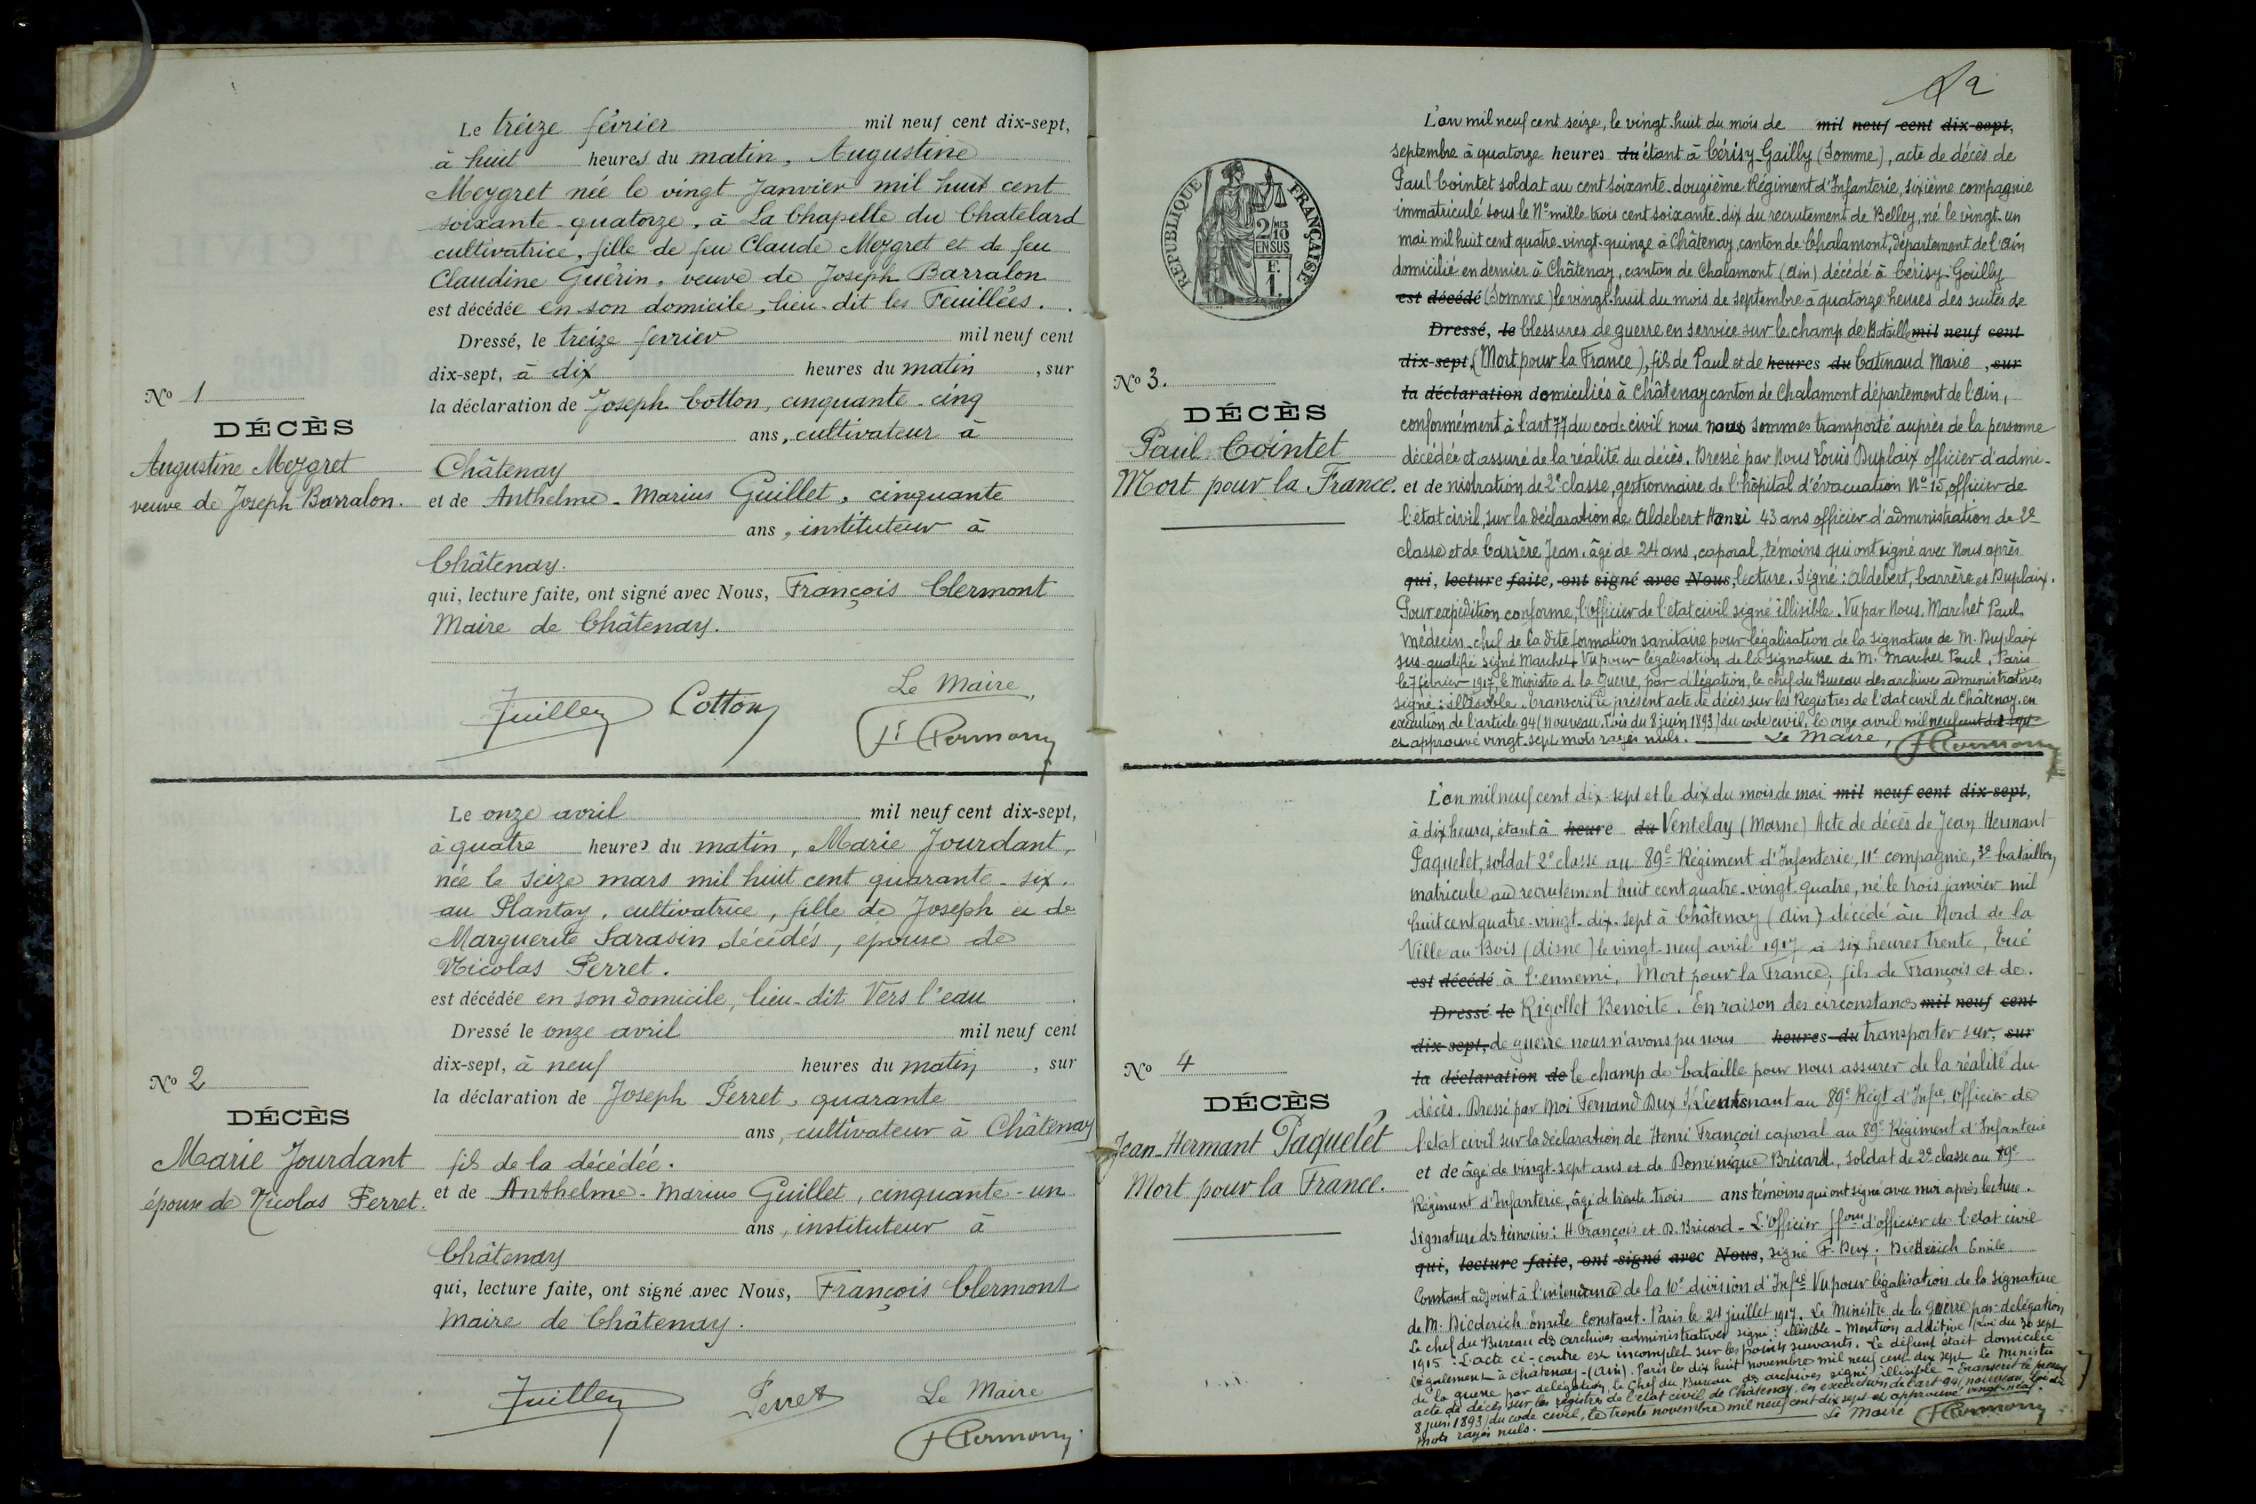 Le treize février mil neuf cent dix-sept,
à huit heures du matin, Augustine
Meygret née le vingt Janvier mil huit cent
soixante-quatorze, à La Chapelle du Chatelard
cultivatrice, fille de feu Claude Meygret et de feu
Claudine Guérin, veuve de Joseph Barralon
est décédée en son domicile, lieu-dit les Feuillées.
Dressé, le treize fevrier mil neuf cent
dix-sept, à dix heures du matin, sur
la déclaration de Joseph Cotton, cinquante-cinq
ans, cultivateur à
Châtenay
et de Anthelme-Marius Guillet, cinquante
ans, instituteur à
Châtenay.
qui, lecture faite, ont signé avec Nous, François Clermont
Maire de Châtenay.
Guillet Cotton Le Maire,
F. Clermont
No 1
DÉCÈS
Augustine Meygret
veuve de Joseph Barralon.
Le onze avril mil neuf cent dix-sept,
à quatre heures du matin, Marie Jourdant,
née le seize mars mil huit cent quarante-six,
au Plantay, cultivatrice, fille de Joseph et de
Marguerite Sarasin décédés, épouse de
Nicolas Perret.
est décédée en son domicile, lieu-dit Vers l'eau
Dressé le onze avril mil neuf cent
dix-sept, à neuf heures du matin, sur
la déclaration de Joseph Perret, quarante
ans, cultivateur à Châtenay
fils de la décédée.
et de Anthelme-Marius Guillet, cinquante-un
ans, instituteur à
Châtenay
qui, lecture faite, ont signé avec Nous, François Clermont
Maire de Châtenay.
Guillet Perret Le Maire
F Clermont
No 2
DÉCÈS
Marie Jourdant
épouse de Nicolas Perret.
2
RÉPUBLIQUE FRANÇAISE
2/10MES
EN SUS
1 F.
L'an mil neuf cent seize, le vingt-huit du mois de mil neuf cent dix-sept,
septembre à quatorze heures du étant à Cérisy-Gailly (Somme), acte de décès de
Paul Cointet soldat au cent soixante-douzième Régiment d'Infanterie, sixième compagnie
immatriculé sous le No mille trois cent soixante-dix du recrutement de Belley, né le vingt-un
mai mil huit cent quatre-vingt-quinze à Châtenay, canton de Chalamont, département de l'Ain
domicilié en dernier à Châtenay, canton de Chalamont (Ain) décédé à Cérisy-Gailly
est décédé (Somme) le vingt-huit du mois de septembre à quatorze heures des suites de
Dressé, le blessures de guerre en service sur le champ de Bataille mil neuf cent
dix-sept, (Mort pour la France), fils de Paul et de heures du Catinaud Marie, sur
la déclaration domiciliés à Châtenay canton de Chalamont département de l'Ain,
conformément à l'art 77 du code civil nous nous sommes transporté auprès de la personne
décédée et assuré de la réalité du décès. Dressé par Nous Louis Duplaix officier d'admi-
et de nistration de 2e classe, gestionnaire de l'hôpital d'évacuation No 15, officier de
l'état civil, sur la déclaration de Aldebert Henri 43 ans officier d'administration de 2e
classe et de Carrère Jean, âgé de 24 ans, caporal, témoins qui ont signé avec Nous après
qui, lecture faite, ont signé avec Nous, lecture. Signé: Aldebert, Carrère et Duplaix.
Pour expédition conforme, l'officier de l'état civil signé illisible. Vu par Nous, Marchet Paul
médecin-chef de la dite formation sanitaire pour légalisation de la signature de M. Duplaix
sus-qualifié signé Marchet. Vu pour légalisation de la signature de M. Marchet Paul, Paris
le 7 février 1917, le Ministre de la Guerre, par délégation, le chef du Bureau des archives administratives
signé: illisible. Transcrit le présent acte de décès sur les Registres de l'état civil de Châtenay, en
exécution de l'article 94 (nouveau, lois du 8 juin 1893) du code civil, le onze avril mil neuf cent dix sept
et approuvé vingt-sept mots rayés nuls. Le Maire, F Clermont
No 3.
DÉCÈS
Paul Cointet
Mort pour la France.
L'an mil neuf cent dix-sept et le dix du mois de mai mil neuf cent dix-sept,
à dix heures, étant à heure du Ventelay (Marne) Acte de décès de Jean Hermant
Paquelet, soldat 2e classe au 89e Régiment d'Infanterie, 11e compagnie, 3e bataillon,
matricule au recrutement huit cent quatre-vingt-quatre, né le trois janvier mil
huit cent quatre-vingt-dix-sept à Châtenay (Ain) décédé au Nord de la
Ville au Bois (Aisne) le vingt-neuf avril 1917 à six heures trente, tué
est décédé à l'ennemi, Mort pour la France, fils de François et de.
Dressé le Rigollet Benoite. En raison des circonstances mil neuf cent
dix-sept, de guerre nous n'avons pu nous heures du transporter sur, sur
la déclaration de le champ de bataille pour nous assurer de la réalité du
décès. Dressé par moi Fernand Dux S/Lieutenant au 89e Régt d'Infie, Officier de
l'état civil sur la déclaration de Henri François caporal au 89e Régiment d'Infanterie
et de âgé de vingt-sept ans et de Dominique Bricard, soldat de 2e classe au 89e
Régiment d'Infanterie, âgé de trente trois ans témoins qui ont signé avec moi après lecture.
Signature des témoins: H. François et D. Bricard - L'Officier ffons d'officier de l'état civil
qui, lecture faite, ont signé avec Nous, signé F. Dux; Diederich Emile
Constant adjoint à l'intendance de la 10e division d'Infie Vu pour légalisation de la signature
de M. Diederich Emile Constant. Paris le 24 juillet 1917. Le Ministre de la Guerre par délégation
Le chef du Bureau des archives administratives signé: illisible - Mention additive (Loi du 30 sept
1915: L'acte ci-contre est incomplet sur les points suivants. Le défunt était domicilié
légalement à Châtenay-(Ain). Paris le dix huit novembre mil neuf cent dix sept Le Ministre
de la guerre par délégation, le Chef du Bureau des archives signé, illisible - Transcrit le présent
acte de décès sur les registres de l'état civil de Châtenay, en exécution de l'art 94, nouveau, loi du
8 juin 1893) du code civil, le trente novembre mil neuf cent dix sept et approuvé vingt-neuf
mots rayés nuls. Le Maire F Clermont
No 4
DÉCÈS
Jean-Hermant Paquelet
Mort pour la France.